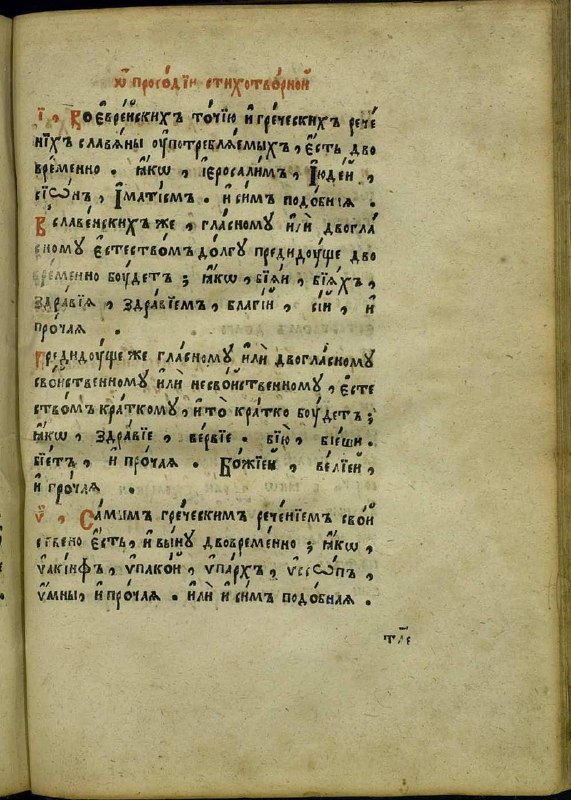 Ѡ҆ просо́дїи стихотво́рной
ї , Во є҆вре́йскихъ то́чїю и҆ гре́ческихъ рече́
нїхъ славѧ́ны ᲂу҆потреблѧ́емыхъ , є҆́сть дво
вре́менно . ꙗ҆́кѡ , їеросали́мъ , І҆ꙋде́й ,
сїѡ́нъ , І҆ма́тїемъ . и҆ си̑мъ подѡ́бнїѧ .
В славе́нскихъ же , гла́сномꙋ и҆лѝ двогла́
сномꙋ є҆стество́мъ до́лгꙋ предидꙋ́ще дво
вре́менно бꙋ́детъ ; ꙗ҆́кѡ , бїѧ́й , бїѧ́хъ ,
здра́вїѧ , здра́вїемъ , благі́й , сі́й , и҆
про́чаѧ .
Предидꙋ́ще же гла́сномꙋ и҆лѝ двогла́сномꙋ
сво́йственномꙋ и҆лѝ несво́йственномꙋ , є҆сте
ство́мъ кра́ткомꙋ , и҆ то̀ кра́тко бꙋ́детъ ;
ꙗ҆́кѡ , здра́вїе , ве́рвїе . бїю̀ , бїе́ши .
бїе́тъ , и҆ про́чаѧ . Бо́жїей , ве́лїей ,
и҆ про́чаѧ .
ѵ҆ , Са́мымъ гре́ческимъ рече́нїемъ свой
ствено є҆́сть , и҆ вы́нꙋ двовре́менно ; ꙗ҆́кѡ ,
ѵ҆аки́нфъ , ѵ҆пако́й , ѵ҆па́рхъ , ѵ҆ссѡ́пъ ,
ѵ҆́мны , и҆ про́чаѧ . и҆лѝ и҆ си̑мъ подо́бнаѧ .